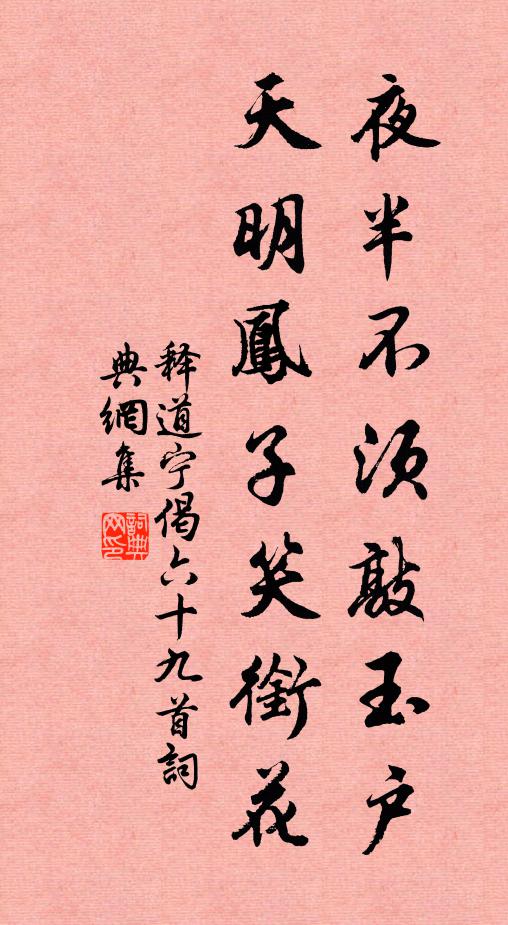 夜半不須敲玉户
天明鳳子笑銜花
释道宁偈六十九首詞
典網集
詞典网印